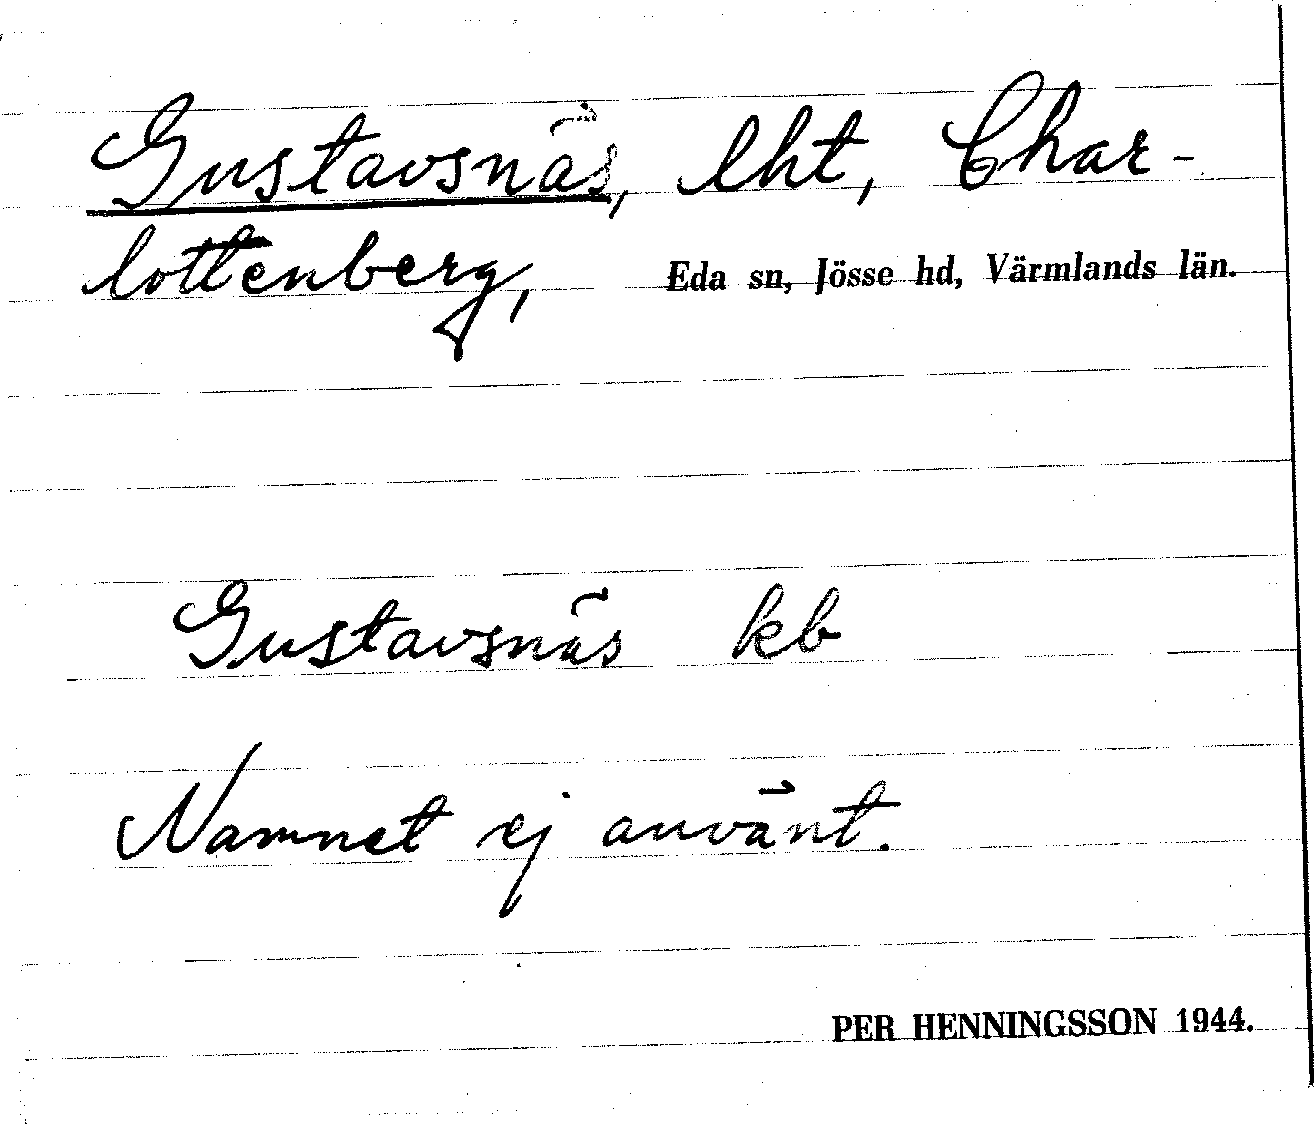 Gustavsnäs, lht, Char-
lottenberg, Eda sn, Jösse hd, Värmlands län.
Gustavsnäs kb
Namnet ej använt.
PER HENNINGSSON 1944.